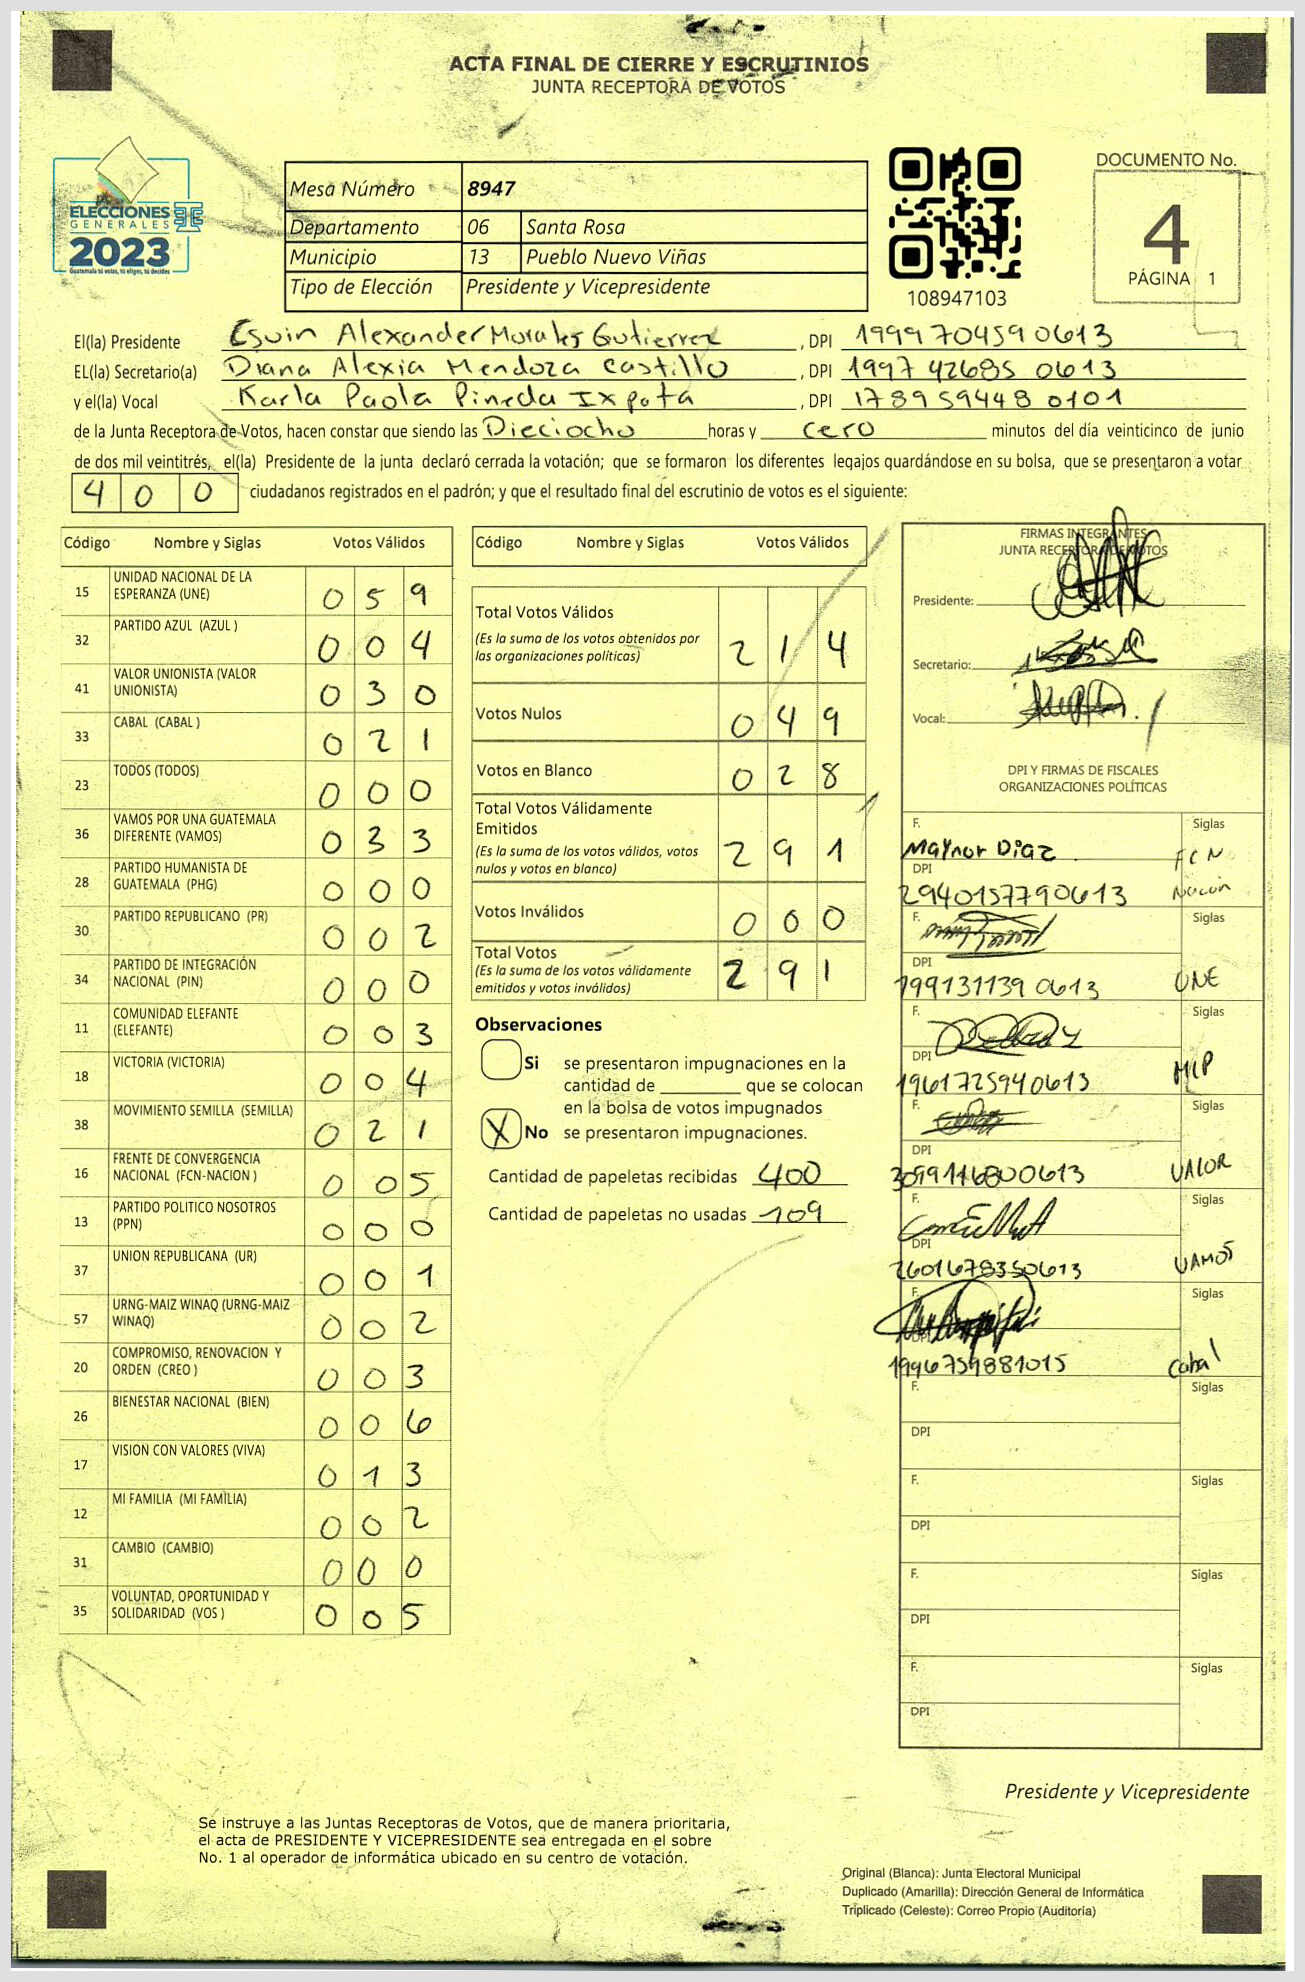 ACTA FINAL DE CIERRE Y ESCRUTINIOS
JUNTA RECEPTORA DE VOTOS
ELECCIONES
GENERALES
2023
Guatemala tú votas, tú eliges, tú decides
Mesa Número 8947
Departamento 06 Santa Rosa
Municipio 13 Pueblo Nuevo Viñas
Tipo de Elección Presidente y Vicepresidente
108947103
DOCUMENTO No.
4
PÁGINA 1
El(la) Presidente Esvin Alexander Morales Gutierrez, DPI 1999704590613
EL(la) Secretario(a) Diana Alexia Mendoza Castillo, DPI 1997 42685 0613
y el(la) Vocal Karla Paola Pineda Ixpatá, DPI 178959448 0101
de la Junta Receptora de Votos, hacen constar que siendo las Dieciocho horas y cero minutos del día veinticinco de junio
de dos mil veintitrés, el(la) Presidente de la junta declaró cerrada la votación; que se formaron los diferentes legajos guardándose en su bolsa, que se presentaron a votar
400 ciudadanos registrados en el padrón; y que el resultado final del escrutinio de votos es el siguiente:
Código Nombre y Siglas Votos Válidos
15 UNIDAD NACIONAL DE LA ESPERANZA (UNE) 059
32 PARTIDO AZUL (AZUL ) 004
41 VALOR UNIONISTA (VALOR UNIONISTA) 030
33 CABAL (CABAL ) 021
23 TODOS (TODOS) 000
36 VAMOS POR UNA GUATEMALA DIFERENTE (VAMOS) 033
28 PARTIDO HUMANISTA DE GUATEMALA (PHG) 000
30 PARTIDO REPUBLICANO (PR) 002
34 PARTIDO DE INTEGRACIÓN NACIONAL (PIN) 000
11 COMUNIDAD ELEFANTE (ELEFANTE) 003
18 VICTORIA (VICTORIA) 004
38 MOVIMIENTO SEMILLA (SEMILLA) 021
16 FRENTE DE CONVERGENCIA NACIONAL (FCN-NACION ) 005
13 PARTIDO POLITICO NOSOTROS (PPN) 000
37 UNION REPUBLICANA (UR) 001
57 URNG-MAIZ WINAQ (URNG-MAIZ WINAQ) 002
20 COMPROMISO, RENOVACION Y ORDEN (CREO ) 003
26 BIENESTAR NACIONAL (BIEN) 006
17 VISION CON VALORES (VIVA) 013
12 MI FAMILIA (MI FAMILIA) 002
31 CAMBIO (CAMBIO) 000
35 VOLUNTAD, OPORTUNIDAD Y SOLIDARIDAD (VOS ) 005
Código Nombre y Siglas Votos Válidos
Total Votos Válidos 214
(Es la suma de los votos obtenidos por
las organizaciones políticas)
Votos Nulos 049
Votos en Blanco 028
Total Votos Válidamente
Emitidos 291
(Es la suma de los votos válidos, votos
nulos y votos en blanco)
Votos Inválidos 000
Total Votos 291
(Es la suma de los votos válidamente
emitidos y votos inválidos)
Observaciones
Si se presentaron impugnaciones en la
cantidad de ________ que se colocan
en la bolsa de votos impugnados
X No se presentaron impugnaciones.
Cantidad de papeletas recibidas 400
Cantidad de papeletas no usadas 109
FIRMAS INTEGRANTES
JUNTA RECEPTORA DE VOTOS
Presidente:
Secretario:
Vocal:
DPI Y FIRMAS DE FISCALES
ORGANIZACIONES POLÍTICAS
F. Maynor Diaz Siglas FCN Nación
DPI 2940157790613
F. Siglas UNE
DPI 199131139 0613
F. Siglas MLP
DPI 1961725940613
F. Siglas VALOR
DPI 3099116800613
F. Siglas VAMOS
DPI 2601678350613
F. Siglas Cabal
DPI 1996759881015
F. Siglas
DPI
F. Siglas
DPI
F. Siglas
DPI
F. Siglas
DPI
Presidente y Vicepresidente
Se instruye a las Juntas Receptoras de Votos, que de manera prioritaria,
el acta de PRESIDENTE Y VICEPRESIDENTE sea entregada en el sobre
No. 1 al operador de informática ubicado en su centro de votación.
Original (Blanca): Junta Electoral Municipal
Duplicado (Amarilla): Dirección General de Informática
Triplicado (Celeste): Correo Propio (Auditoría)